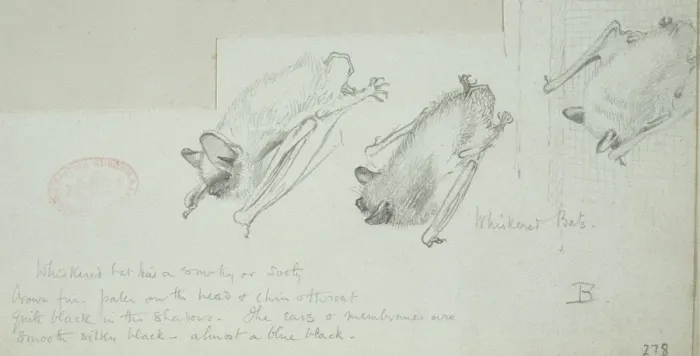 Whiskered Bats.
Whiskered bat has a smoky or sooty
brown fur. paler on the head & chin & throat
quite black in the shadows. The ears & membranes are
smooth silky black - almost a blue black.
B.
278